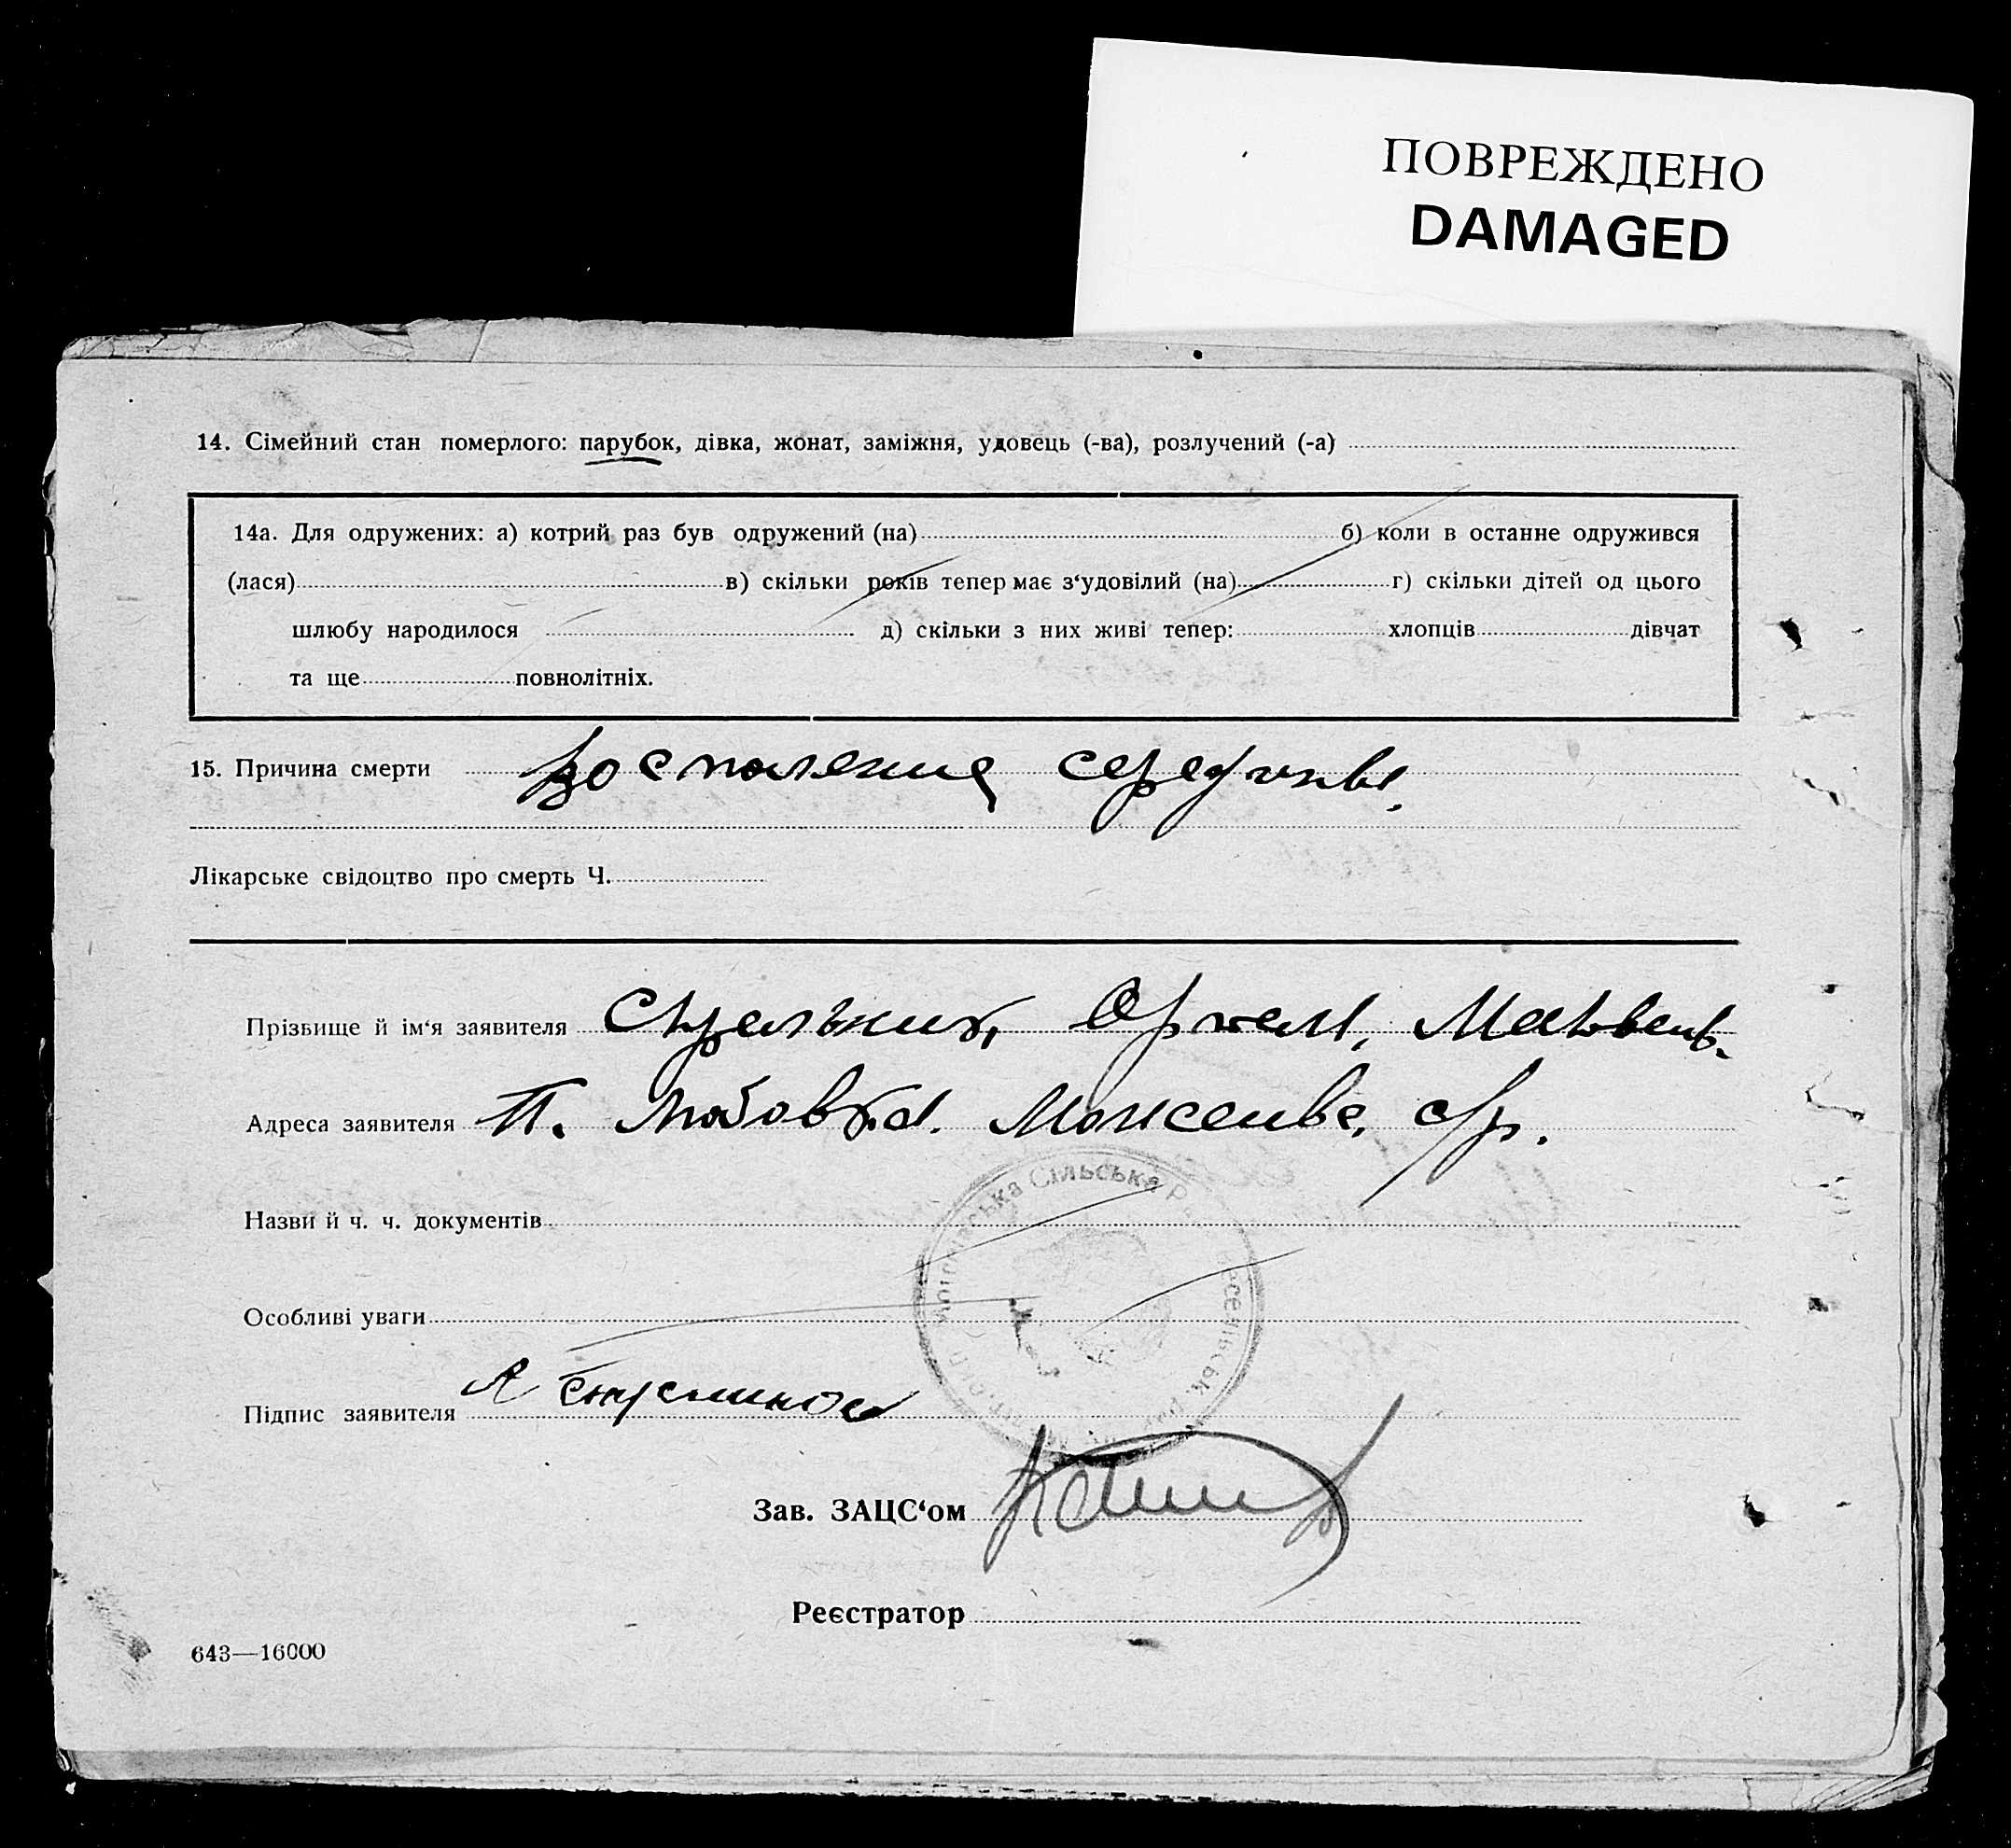 ПОВРЕЖДЕНО
DAMAGED
14. Сімейний стан померлого: парубок, дівка, жонат, заміжня, удовець (-ва), розлучений (-а)
14а. Для одружених: а) котрий раз був одружений (на) б) коли в останнє одружився
(лася) в) скільки років тепер має з‘удовілий (на) г) скільки дітей од цього
шлюбу народилося д) скільки з них живі тепер: хлопців дівчат
та ще повнолітніх.
15. Причина смерти воспаление
Лікарське свідоцтво про смерть Ч.
Прізвище й ім‘я заявителя
Адреса заявителя П. Любовка. с/р.
Сільська
Назви й ч. ч. документів
Особливі уваги
Підпис заявителя
Зав. ЗАЦС‘ом
Реєстратор
643—16000